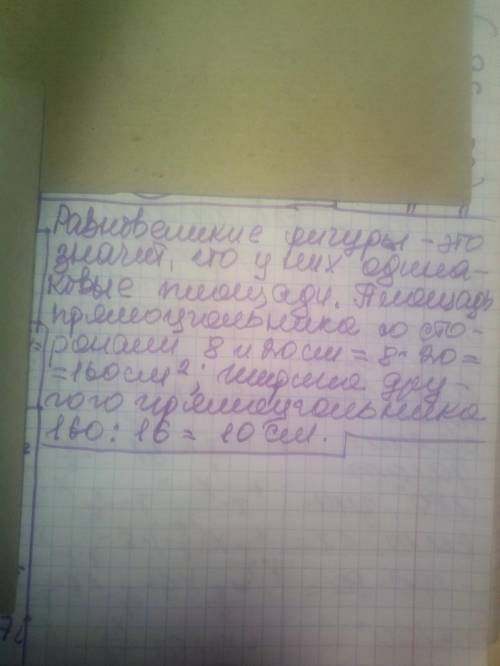 Равновеликие фигуры - это
значит, что у них одина-
ковые площади. Площадь
прямоугольника со сто-
ронами 8 и 20 см = 8 · 20 =
= 160 см²; ширина дру-
гого прямоугольника
160 : 16 = 10 см.